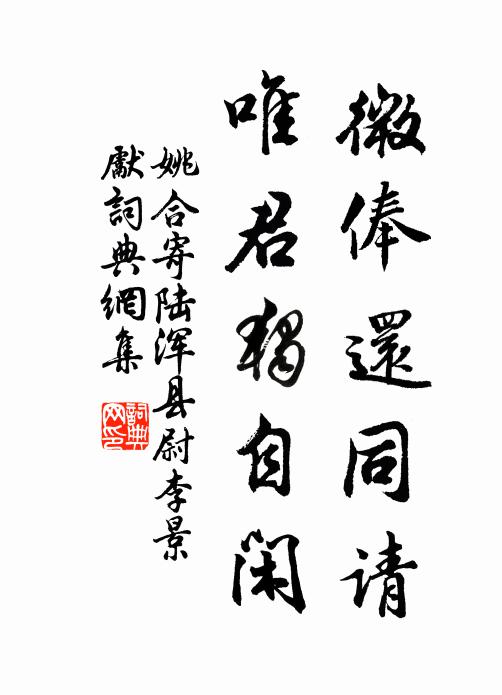 微俸還同請
唯君獨自閑
姚合寄陆浑县尉李景
獻詞典網集
詞典
网印